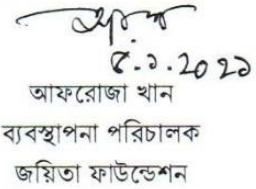 ৫.১.২০২১
আফরোজা খান
ব্যবস্থাপনা পরিচালক
জয়িতা ফাউন্ডেশন